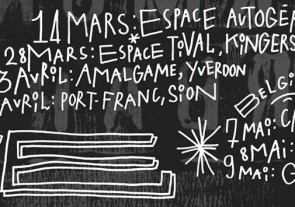 14 MARS: ESPACE AUTOGÉ
28 MARS: ESPACE TILVAL, KINGERS
3 AVRIL: AMALGAME, YVERDON
AVRIL: PORT-FRANC, SION
BELGI
7 MAI: C
8 MAI:
9 MAI: G